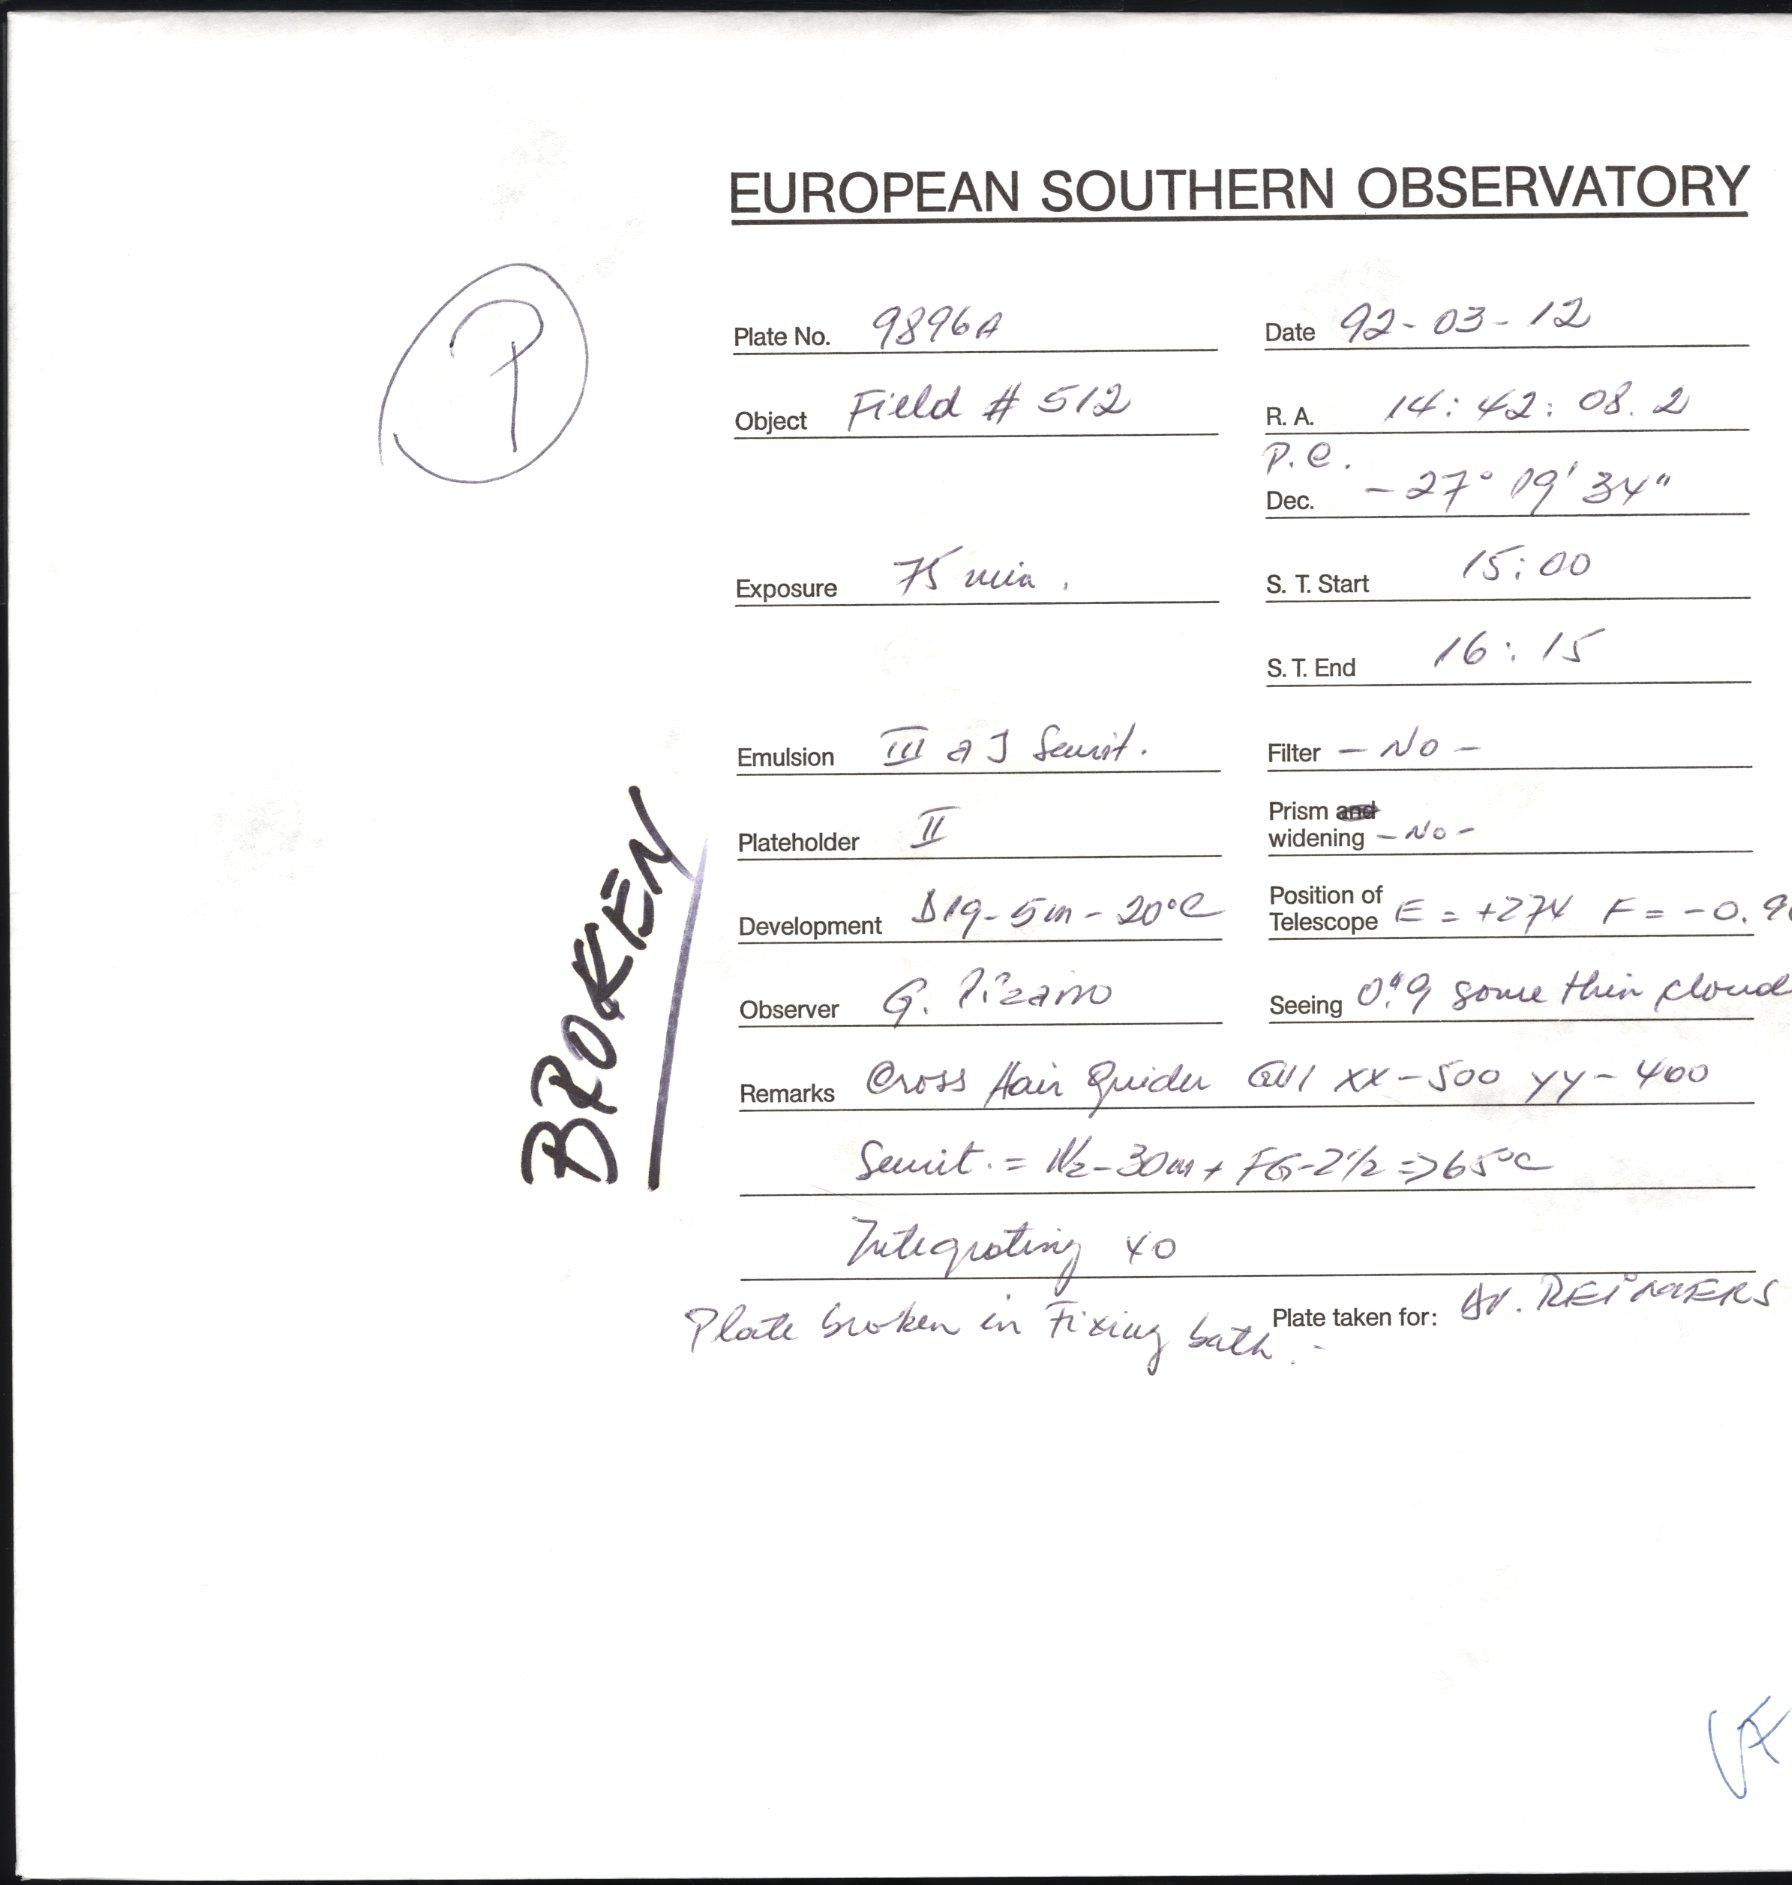 EUROPEAN SOUTHERN OBSERVATORY
P
Plate No. 9896A
Date 92-03-12
Object Field # 512
R. A. 14:42:08.2
P.C.
Dec. -27° 19' 34"
Exposure 75 min.
S. T. Start 15:00
S. T. End 16:15
Emulsion III a J Sensit.
Filter - No -
Plateholder II
Prism
widening - No -
Development D19-5m-20°C
Position of
Telescope E = +274 F = -0.9
Observer G. Pizarro
Seeing 0."9 some thin cloud
Remarks Cross Hair Guider GW1 XX-500 YY-400
Sensit. = N2-30m + FG-2 1/2 => 65°C
Integrating 40
Plate broken in Fixing bath.-
Plate taken for: Dr. REIMERS
BROKEN